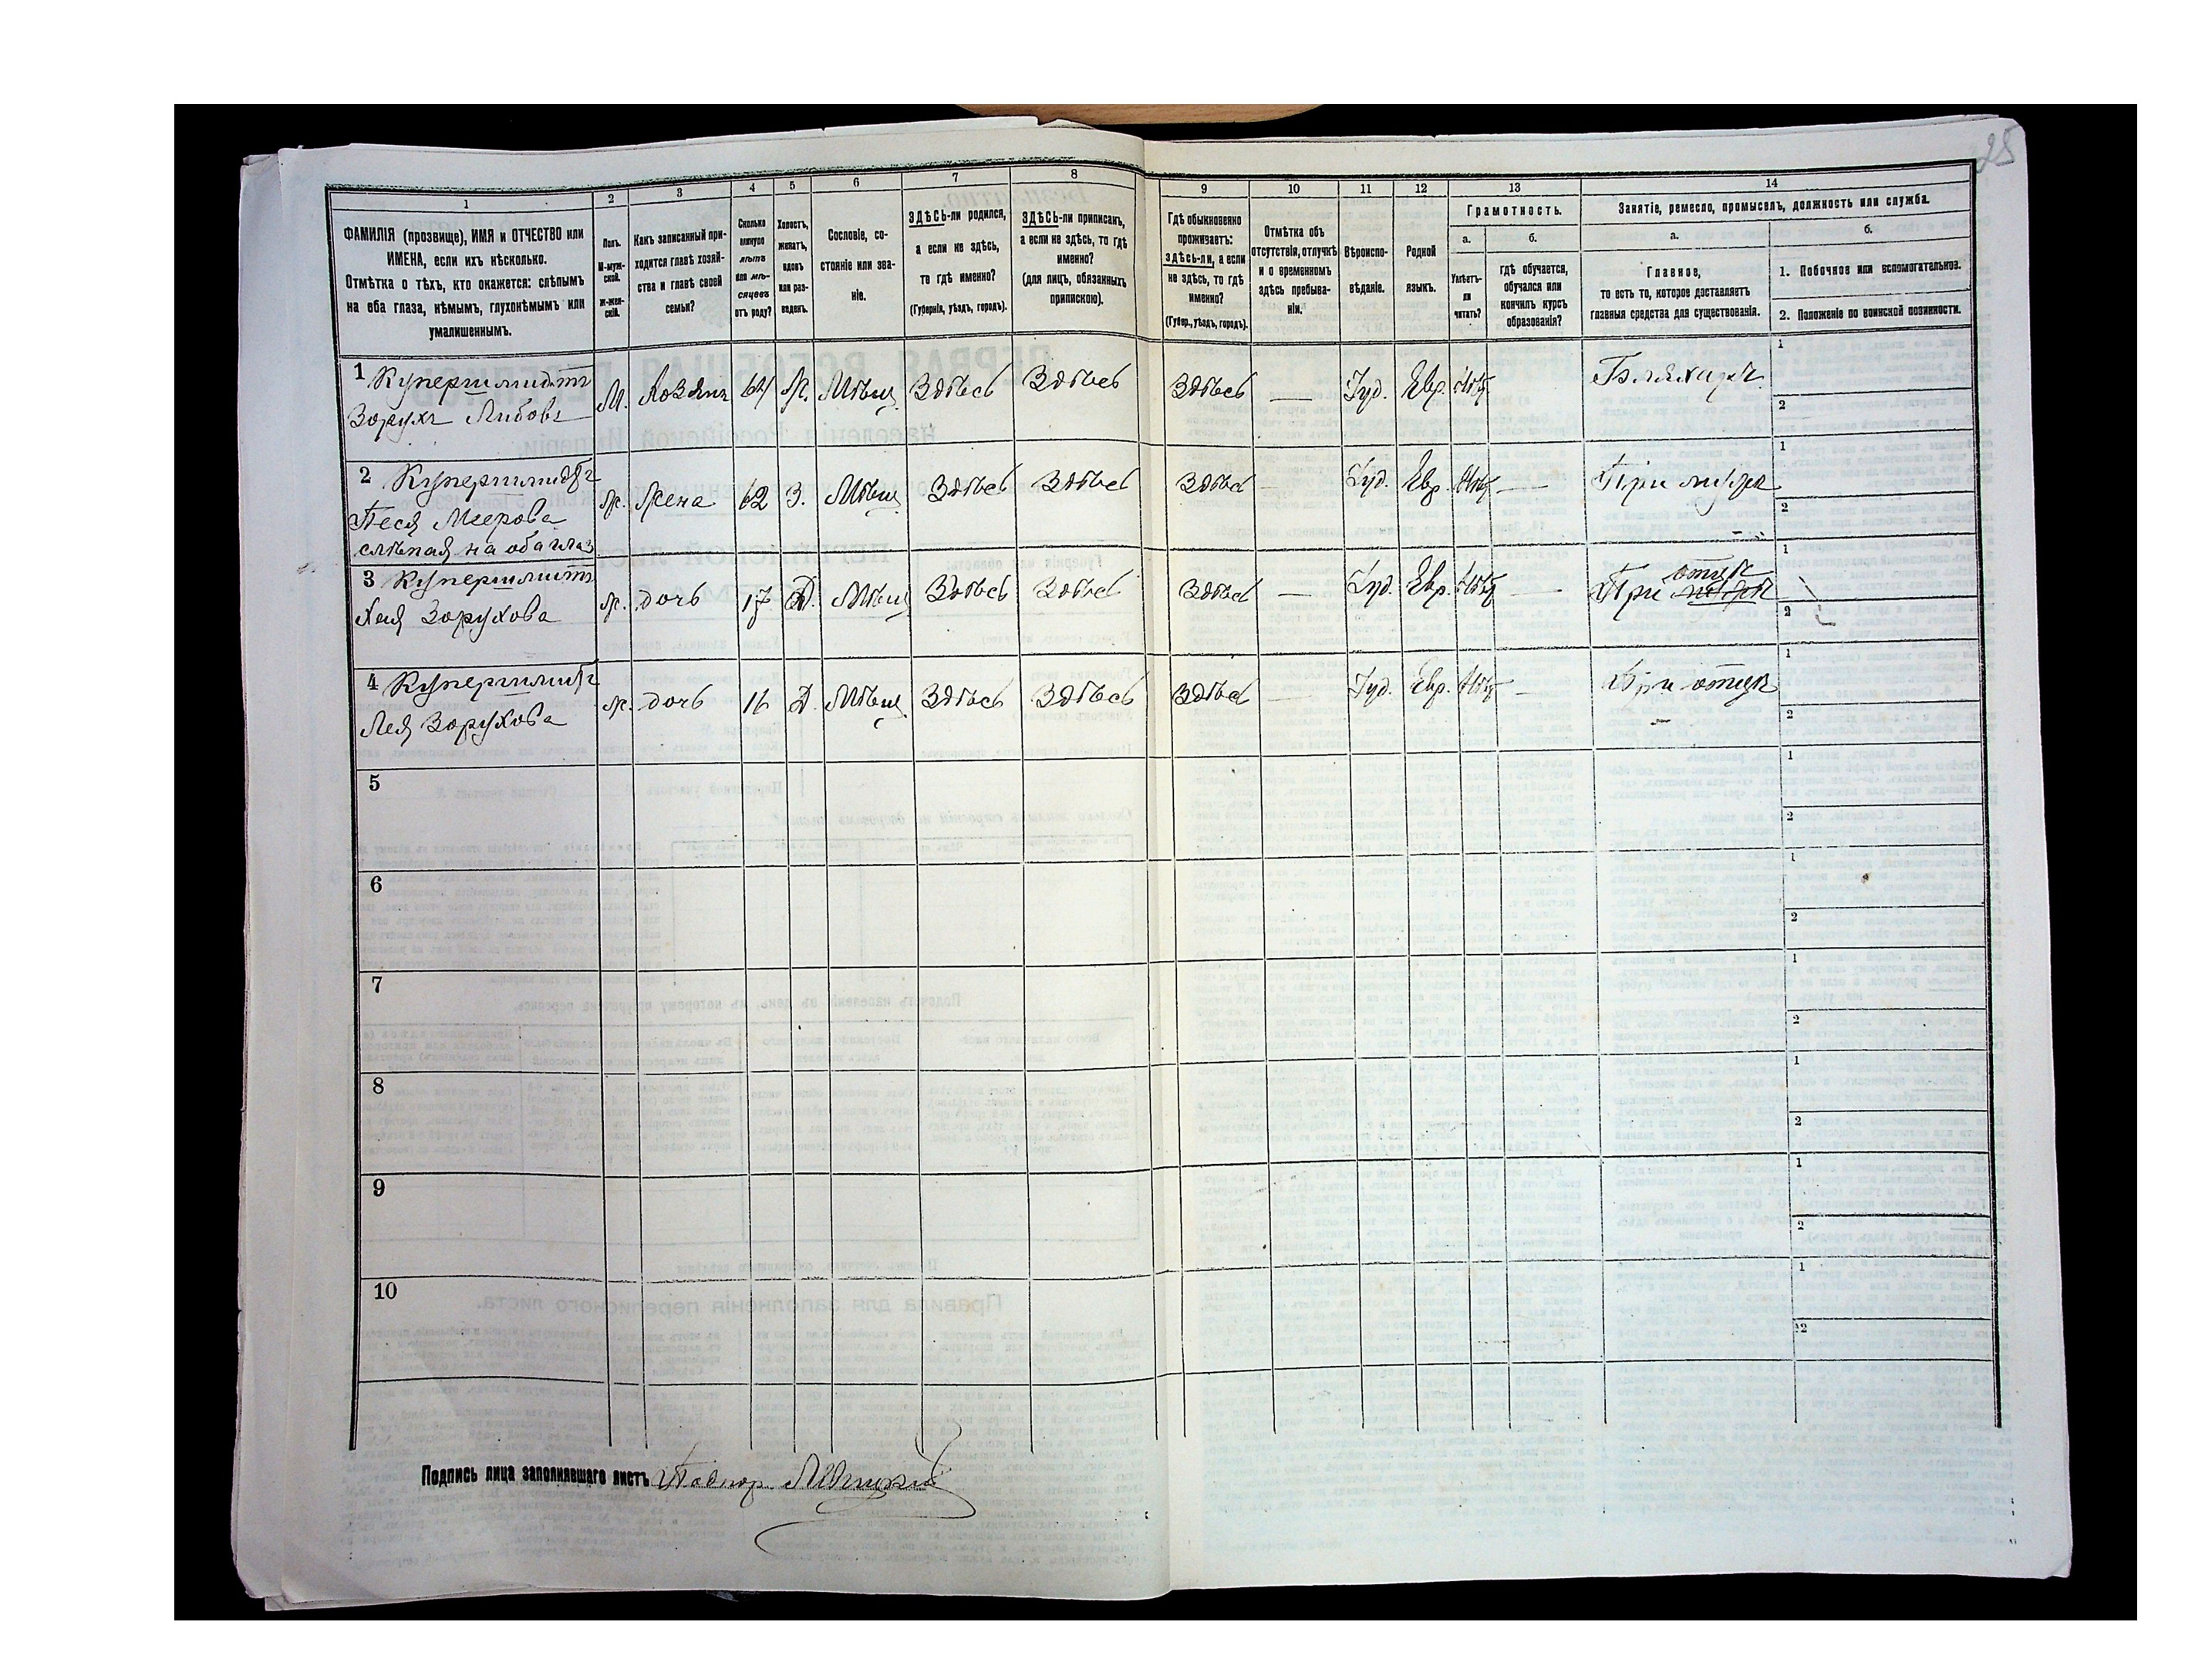 25
1 2 3 4 5 6 7 8 9 10 11 12 13 14
ФАМИЛІЯ (прозвище), ИМЯ и ОТЧЕСТВО или
ИМЕНА, если ихъ нѣсколько.
Отмѣтка о тѣхъ, кто окажется: слѣпымъ
на оба глаза, нѣмымъ, глухонѣмымъ или
умалишеннымъ.
Полъ.
М-муж-
ской.
Ж-жен-
скій.
Какъ записанный при-
ходится главѣ хозяй-
ства и главѣ своей
семьи?
Сколько
минуло
лѣтъ
или мѣ-
сяцевъ
отъ роду?
Холостъ,
женатъ,
вдовъ
или раз-
веденъ.
Сословіе, со-
стояніе или зва-
ніе.
ЗДѢСЬ-ли родился,
а если не здѣсь,
то гдѣ именно?
(Губернія, уѣздъ, городъ).
ЗДѢСЬ-ли приписанъ,
а если не здѣсь, то гдѣ
именно?
(для лицъ, обязанныхъ
припискою).
Гдѣ обыкновенно
проживаетъ:
здѣсь-ли, а если
не здѣсь, то гдѣ
именно?
(Губер., уѣздъ, городъ).
Отмѣтка объ
отсутствіи, отлучкѣ
и о временномъ
здѣсь пребыва-
ніи.
Вѣроиспо-
вѣданіе.
Родной
языкъ.
Грамотность.
а. б.
Умѣетъ-
ли
читать?
гдѣ обучается,
обучался или
кончилъ курсъ
образованія?
Занятіе, ремесло, промыселъ, должность или служба.
а. б.
Главное,
то есть то, которое доставляетъ
главныя средства для существованія.
1. Побочное или вспомогательное.
2. Положеніе по воинской повинности.
1 Купершмидтъ М. Хозяинъ 64 Ж. Мѣщ. Здѣсь Здѣсь Здѣсь — Іуд. Евр. Нѣтъ Бляхарь 1
Зорухъ Либовъ 2
2 Купершмидтъ Ж. Жена 62 З. Мѣщ Здѣсь Здѣсь Здѣсь — Іуд. Евр. Нѣтъ — При мужѣ 1
Песя Меерова 2
слѣпая на оба глаз
3 Купершмитъ Ж. дочь 17 Д. Мѣщ Здѣсь Здѣсь Здѣсь — Іуд. Евр. Нѣтъ — При отцѣ 1
Зорухова 2
4 Купершмитъ Ж. дочь 16 Д. Мѣщ. Здѣсь Здѣсь Здѣсь — Іуд. Евр. Нѣтъ — При отцѣ 1
Лея Зорухова 2
5 1
2
6 1
2
7 1
2
8 1
2
9 1
2
10 1
2
Подпись лица заполнявшаго листъ